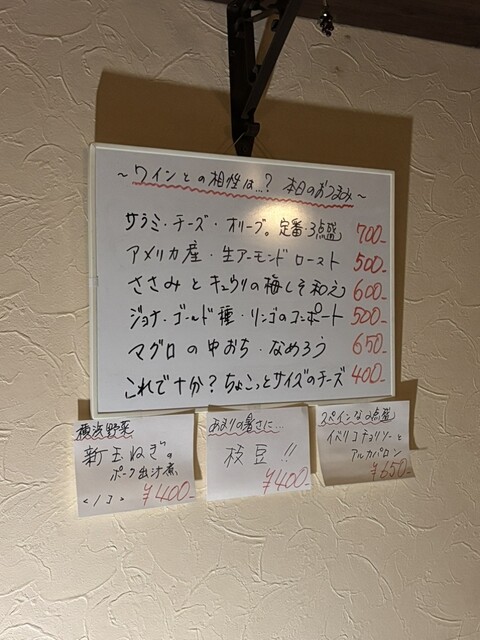 ～ワインとの相性は…？ 本日のおつまみ～
サラミ・チーズ・オリーブ。定番・3点盛 700-
アメリカ産・生アーモンドロースト 500-
ささみとキュウリの梅しそ和え 600-
ジョナ・ゴールド種・リンゴのコンポート 500-
マグロの中おち・なめろう 650-
これで十か？ちょこっとサイズのチーズ 400-
横浜野菜
新玉ねぎの
ポーク出汁煮
<1コ> ¥400-
あまりの暑さに…
枝豆!!
¥400-
スペインな2点盛
イベリコチョリソーと
アルカパロン
¥650-